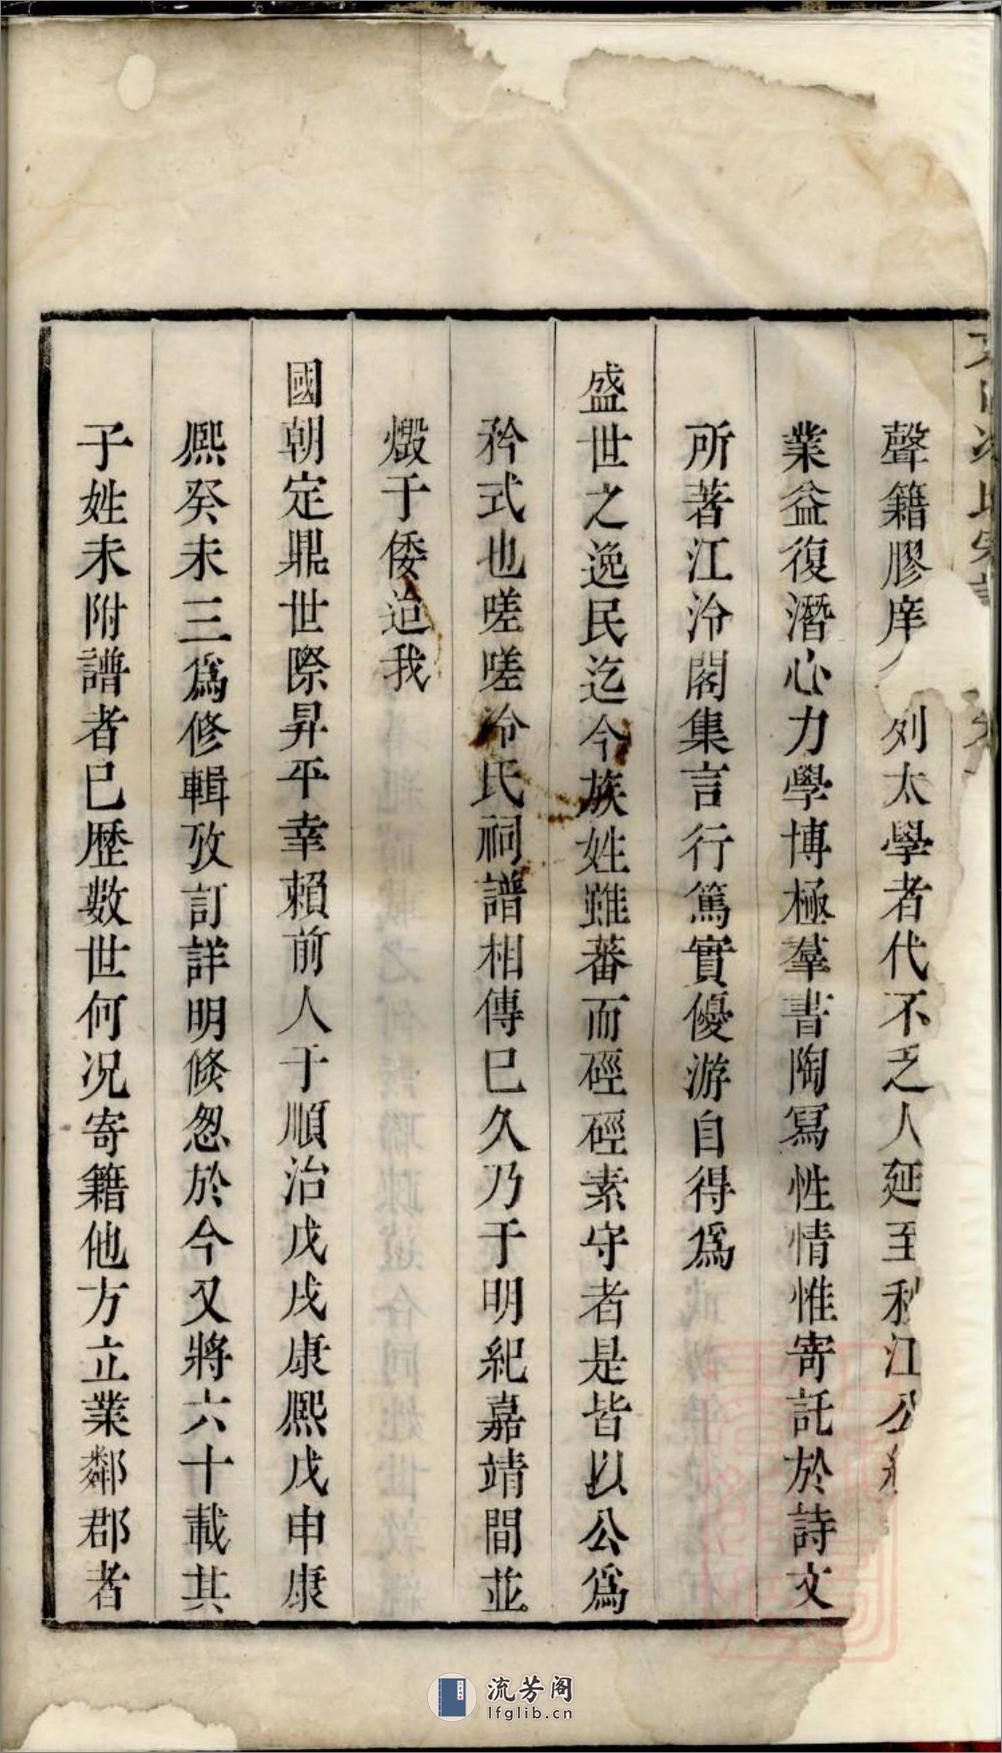 聲籍膠庠列太學者代不乏人延至秋江公
業益復潛心力學博極羣書陶冩性情惟寄託於詩文
所著江泠閣集言行篤實優游自得爲
盛世之逸民迄今族姓雖蕃而硜硜素守者是皆以公爲
矜式也嗟嗟泠氏祠譜相傳已久乃于明紀嘉靖間並
燬于倭迨我
國朝定鼎世際昇平幸賴前人于順治戊戌康熙戊申康
熙癸未三爲修輯攷訂詳明倐怱於今又將六十載其
子姓未附譜者已歷數世何况寄籍他方立業鄰郡者
流芳阁
lfglib.cn